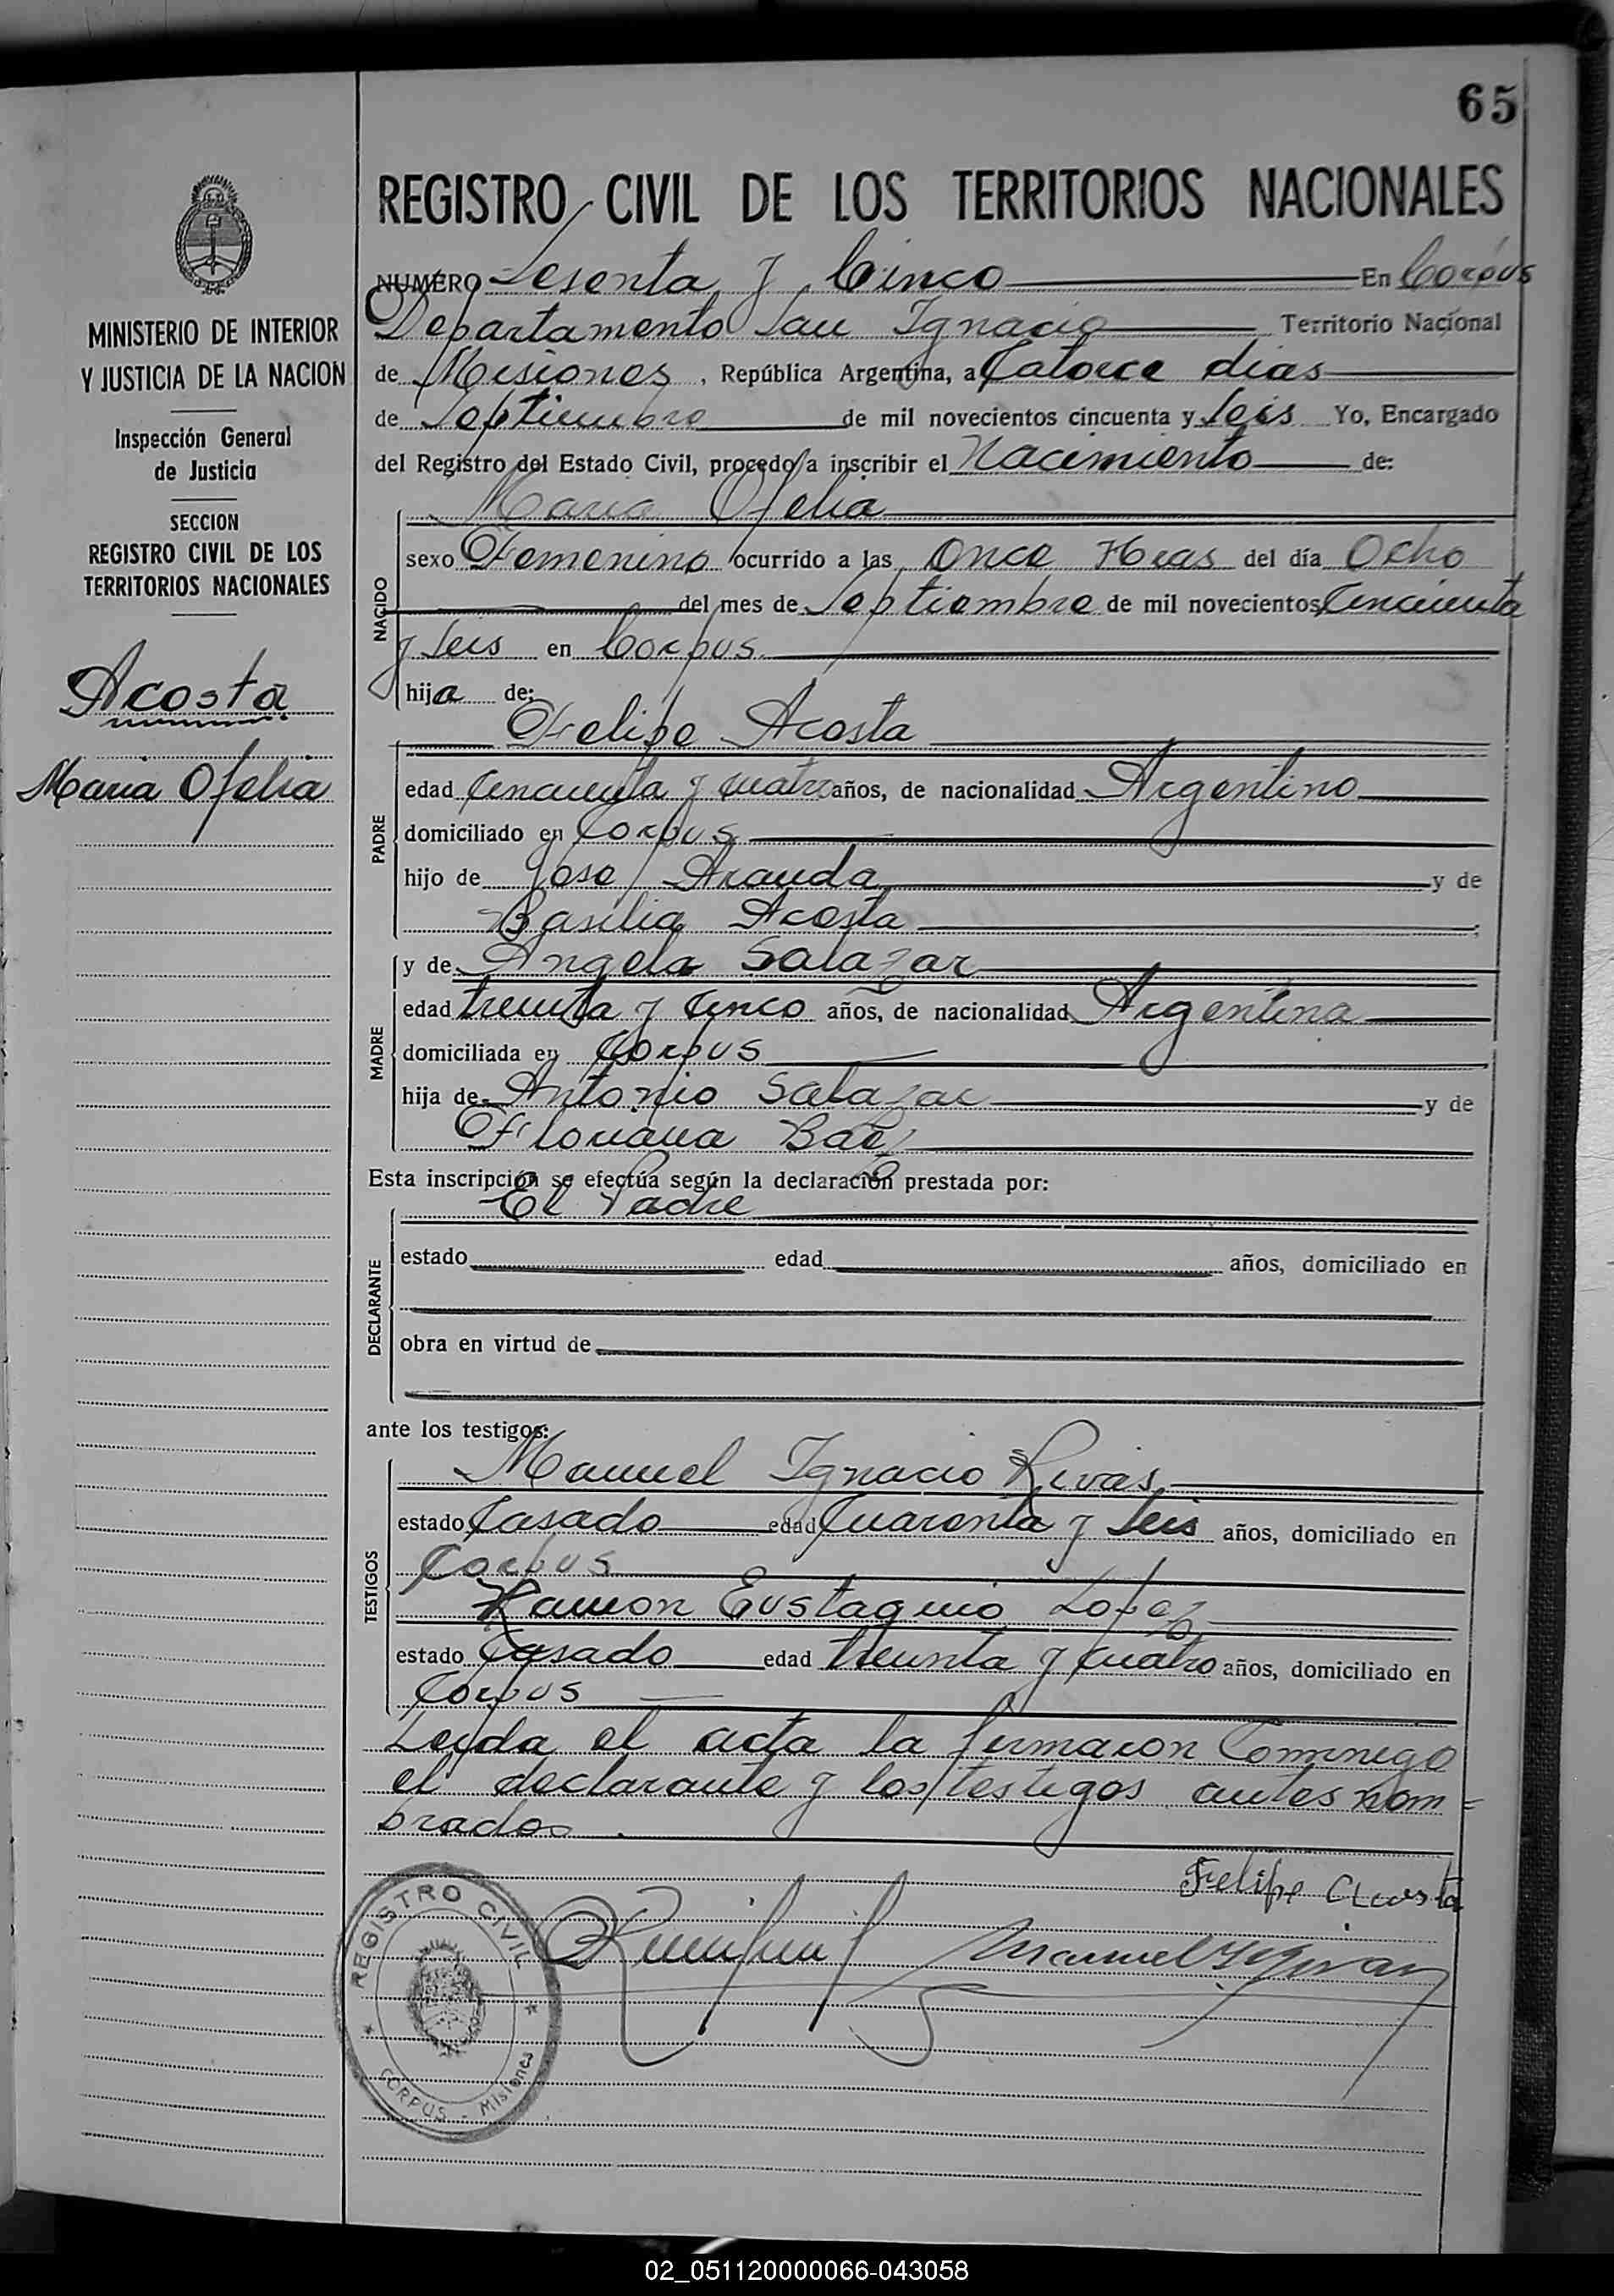 65
REGISTRO CIVIL DE LOS TERRITORIOS NACIONALES
MINISTERIO DE INTERIOR
Y JUSTICIA DE LA NACION
Inspección General
de Justicia
SECCION
REGISTRO CIVIL DE LOS
TERRITORIOS NACIONALES
Acosta
Maria Ofelia
NUMERO Sesenta y Cinco En Corpus
Departamento San Ignacio Territorio Nacional
de Misiones, República Argentina, a Catorce dias
de Septiembre de mil novecientos cincuenta y Seis Yo, Encargado
del Registro del Estado Civil, procedo a inscribir el Nacimiento de:
NACIDO
Maria Ofelia
sexo Femenino ocurrido a las Once Hras del día Ocho
del mes de Septiembre de mil novecientos Cincuenta
y Seis en Corpus.
hija de:
PADRE
Felipe Acosta
edad Cincuenta y cuatro años, de nacionalidad Argentino
domiciliado en Corpus
hijo de Jose Aranda y de
Basilia Acosta
MADRE
y de Angela Salazar
edad treinta y Cinco años, de nacionalidad Argentina
domiciliada en Corpus
hija de Antonio Salazar y de
Floriana Baez
Esta inscripción se efectúa según la declaración prestada por:
DECLARANTE
El Padre
estado edad años, domiciliado en
obra en virtud de
ante los testigos:
TESTIGOS
Manuel Ignacio Rivas
estado Casado edad Cuarenta y Seis años, domiciliado en
Corpus
Ramon Eustaquio Lopez
estado Casado edad treinta y cuatro años, domiciliado en
Corpus
Leyda el acta la firmaron Conmnigo
el declarante y los testigos antes nom=
brados.
Felipe Acosta
REGISTRO CIVIL
CORPUS - Misiones
02_051120000066-043058